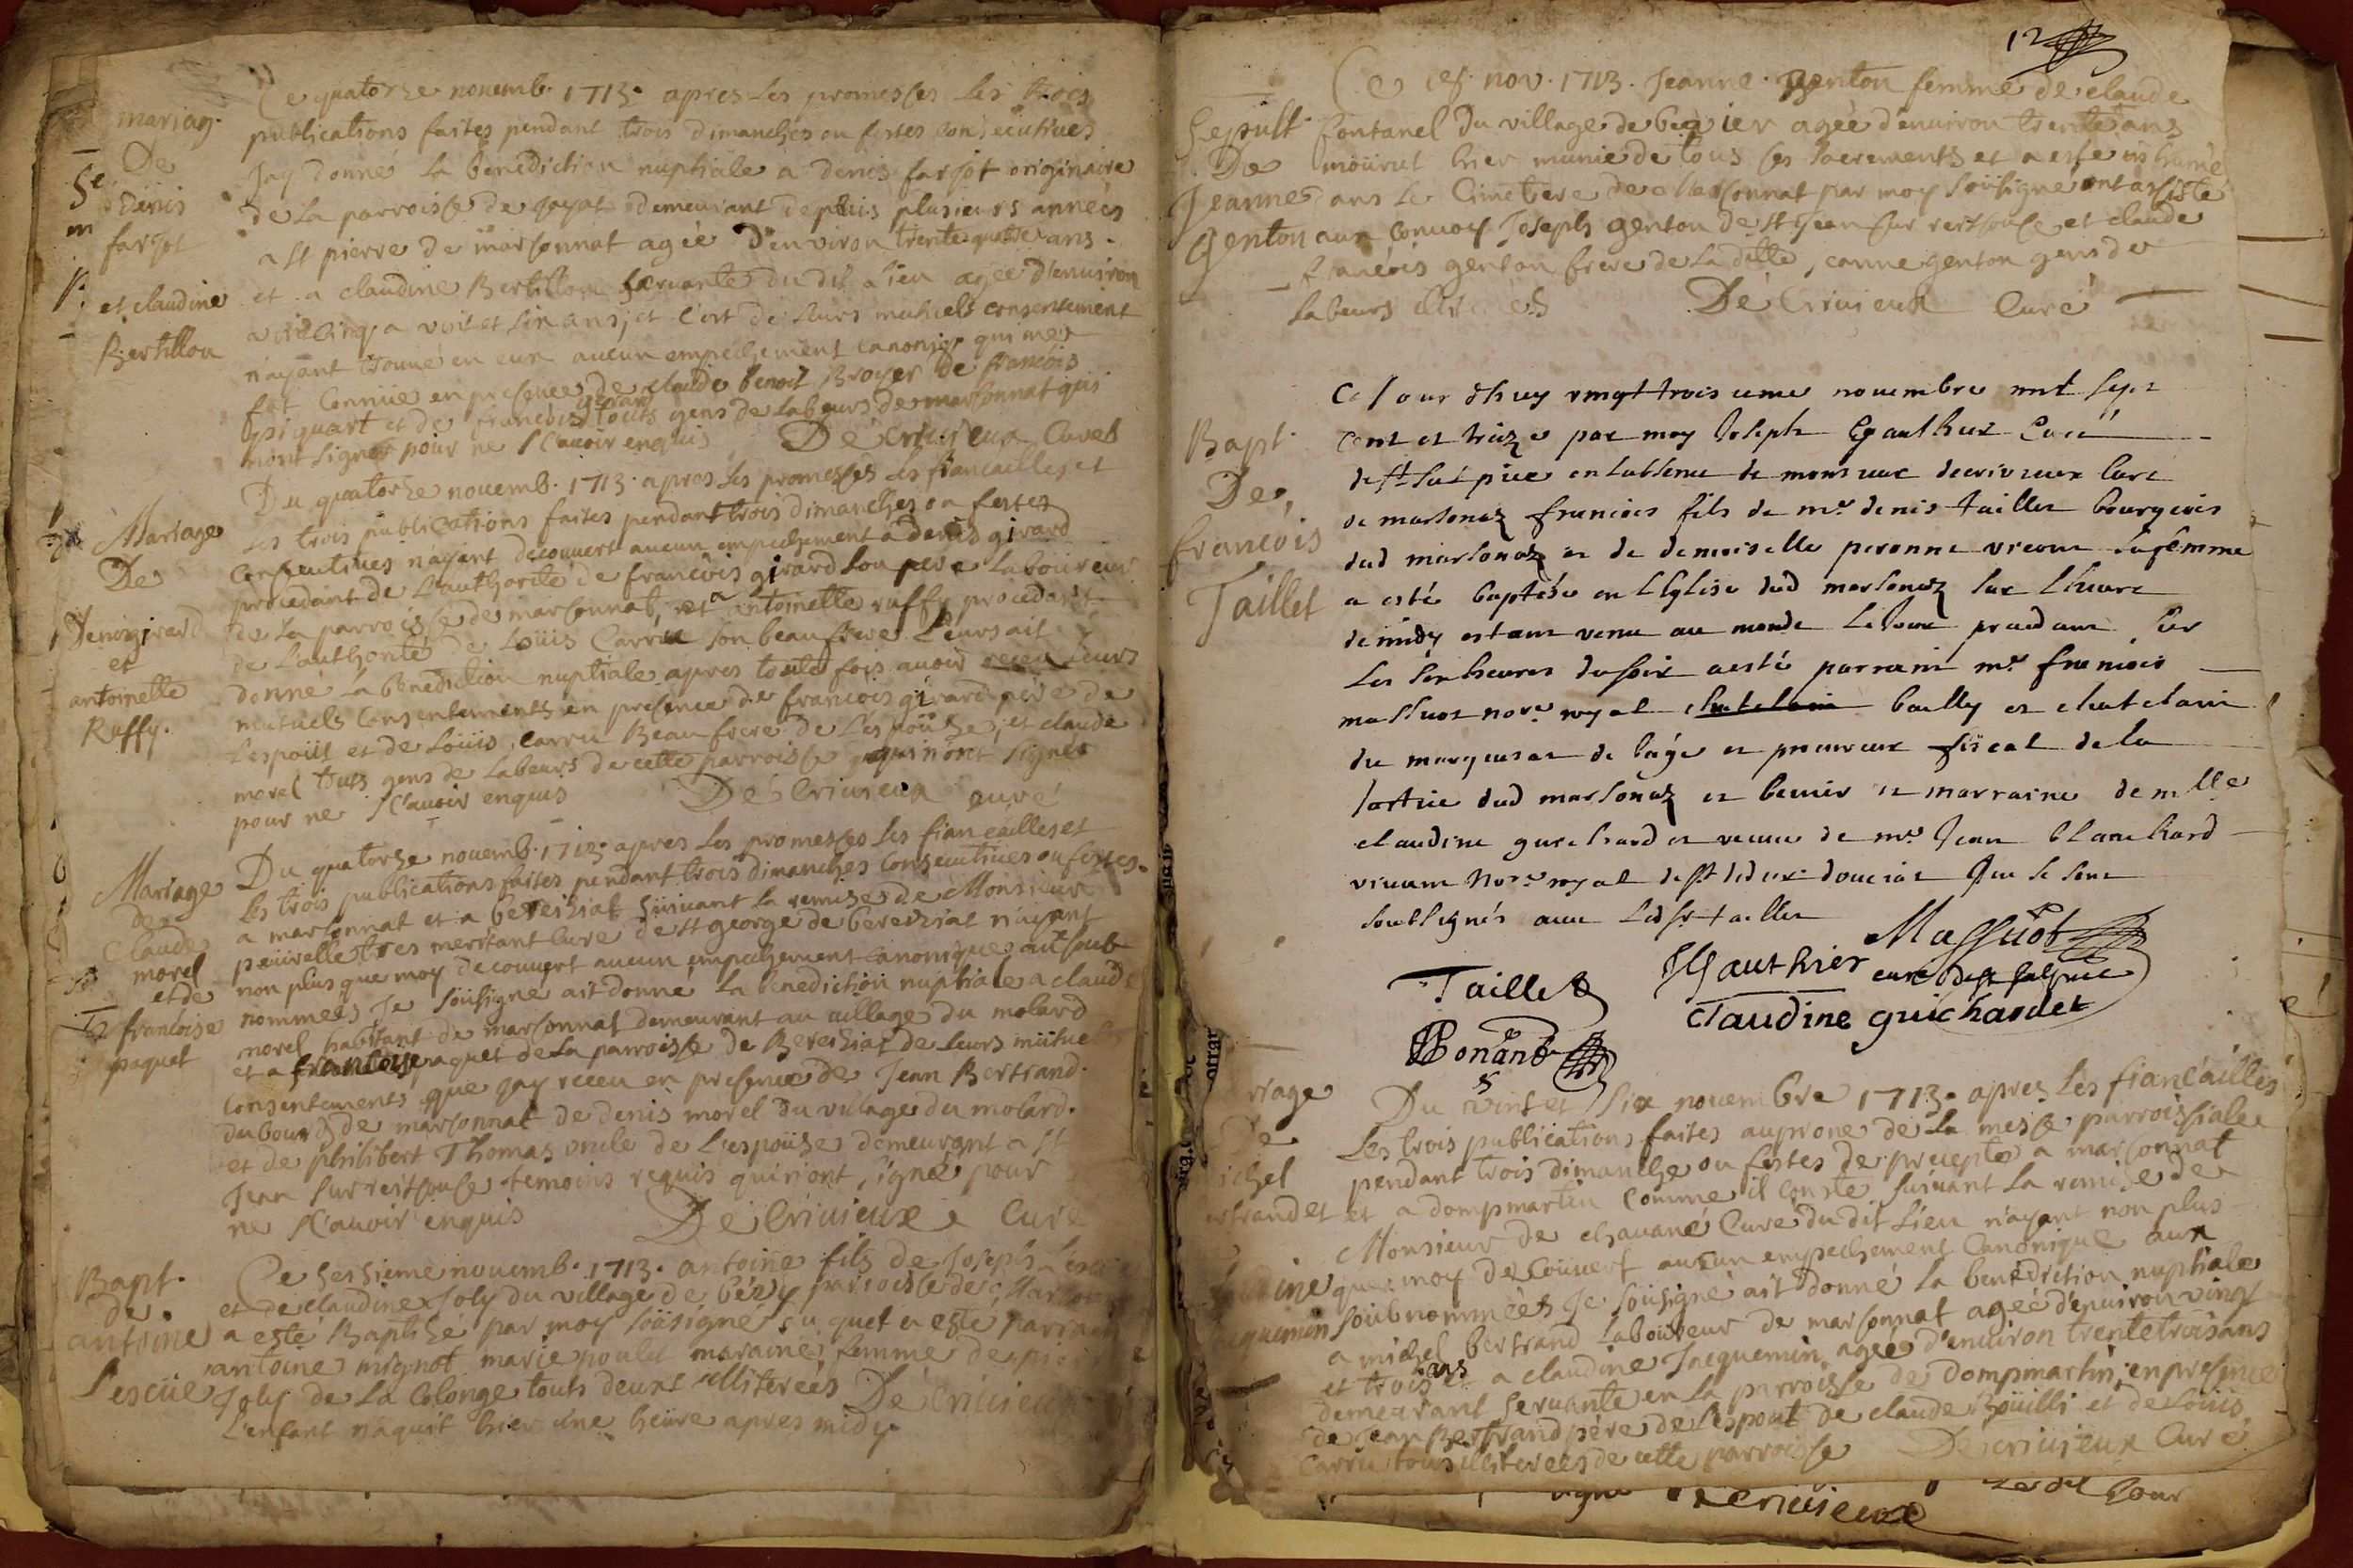 mariag.
De
Denis
farjot
et claudine
Bertillon
Ce quatorze novemb. 1713. apres les promesses les trois
publications faites pendant trois dimanches ou festes consecutives
Jay donné la benediction nuptiale a denis farjot originaire
de la parroisse de jayat demeurant depuis plusieurs années
a st pierre de marsonnat agée d'environ trente quatre ans.
et a claudine Bertillon servante du dit lieu agée d'environ
vint cinq a vint et six ans, et c'est de leurs mutuels consentement
n'ayant trouvé en eux aucun empechement canoniq. qui me
fut connüe en presence de claude benoit Broyer de francois
piquart et de francois girard touts gens de labeurs de marsonnat qui
n'ont signé pour ne sçavoir enquis Decrivieux Curé
Mariage
De
Denis girard
et
antoinette
Ruffy.
Du quatorze novemb. 1713. apres les promesses les fiancailles et
les trois publications faites pendant trois dimanches ou festes
consecutives n'ayant decouvert aucun empechement a denis girard
procedant de l'authorité de francois girard son pere laboureur
de la parroisse de marsonnat, et a antoinette ruffy procedant
de l'authorité de Loüis Carru son beaufrere Leurs ait
donné la benediction nuptiale apres toute fois avoir receu leurs
mutuels consentements en presence de francois girard pere de
l'espoüs et de Loüis carru Beaufrere de l'espoüse, et claude
morel touts gens de labeurs de cette parroisse qui n'ont signés
pour ne sçavoir enquis Decrivieux curé
Mariage
de
Claude
morel
et de
francoise
paquet
Du quatorze novemb. 1713. apres les promesses les fiancailles et
les trois publications faites pendant trois dimanches consecutives ou festes.
a marsonnat et a bereiziat suivant la remise de Monsieur
peuvelle tres meritant Curé de st george de bereiziat n'ayant
non plus que moy decouvert aucun empechement canonique aux soub
nommées Je soüsigné ait donné la benediction nuptiale a claude
morel habitant de marsonnat demeurant au village du molard
et a francoise paquet de la parroisse de Bereiziat de leurs mütuels
consentements que jay receu en presence de Jean Bertrand.
du bourg de marsonnat de denis morel du village du molard.
et de philibert Thomas oncle de l'espoüse demeurant a st
Jean sur reissouse temoins requis qui n'ont signé pour
ne sçavoir enquis Decrivieux Curé
Bapt.
de
antoine
Lescüe
Ce seizieme novemb. 1713. antoine fils de Joseph
et de claudine Joly du village de bézy parroisse de
a esté Baptizé par moy soüsigné, du quel a esté parrain
antoine mignot marie poulet maraine femme de
Joly de la Colonge touts deux illiterées Decrivieux
L'enfant naquit hier une heüre apres midy.
12
Sepult.
De
Jeanne
Genton
Ce nov. 1713. Jeanne Genton femme de claude
fontanel du village de agée d'environ trente ans
mourut hier munie de tous ses sacrements et a esté inhumé
dans le Cimetiere de Marsonnat par moy soüsigné ont assisté
aux convoy Joseph genton de st Jean sur reissouse et claude
francois genton frere de la ditte Jeanne genton gens de
labeurs Decrivieux Curé
Bapt.
De
francois
Taillet
Cejourdhuy vingt troisieme novembre mil sept
cent et treize par moy Joseph Gauthier Curé
de st Sulpice en labsence de monsieur decrivieux Curé
de marsonaz francois fils de mr denis taillet bourgeois
dud marsonaz et de demoiselle peronne sa femme
a esté baptisé en Léglise dud marsonaz sur Lheure
de midy estant venu au monde Le Jour precedant sur
Les six heures du soir a esté parrain mr francois
massuot nore royal chatelain bailly et chatelain
du marquisat de bâge et procureur fiscal de la
dud marsonaz et et marraine demlle
claudine guichardet veuve de mr Jean blanchard
vivant nore royal de st didier doussiat Qui se sont
soubsignés avec Led sr taillet
Taillet
JGauthier curé de st sulpice
Massuot
Claudine guichardet
Bonand
riage
De
ichel
rtrand et
dine
aquemin
Du vint et six novembre 1713. apres les fiancailles
les trois publications faites au prone de la messe parroissiale
pendant trois dimanche ou festes de precepte a marsonnat
et a dompmartin comme il conste suivant la remise de
Monsieur de chavané Curé du dit lieu n'ayant non plus
que moy decouvert aucun empechement Canonique aux
soubnommées Je soüsigné ait donné la benediction nuptiale
a michel bertrand laboureur de marsonnat agée d'environ vingt
et trois ans et a claudine Jacquemin agée d'environ trente trois ans
demeurant servante en la parroisse de dompmartin; en presence
de Jean Bertrand père de l'espout de claude Boüilli et de Loüis
Carru tous illiterées de cette parroisse Decrivieux Curé
Decrivieux
Le dit Jour